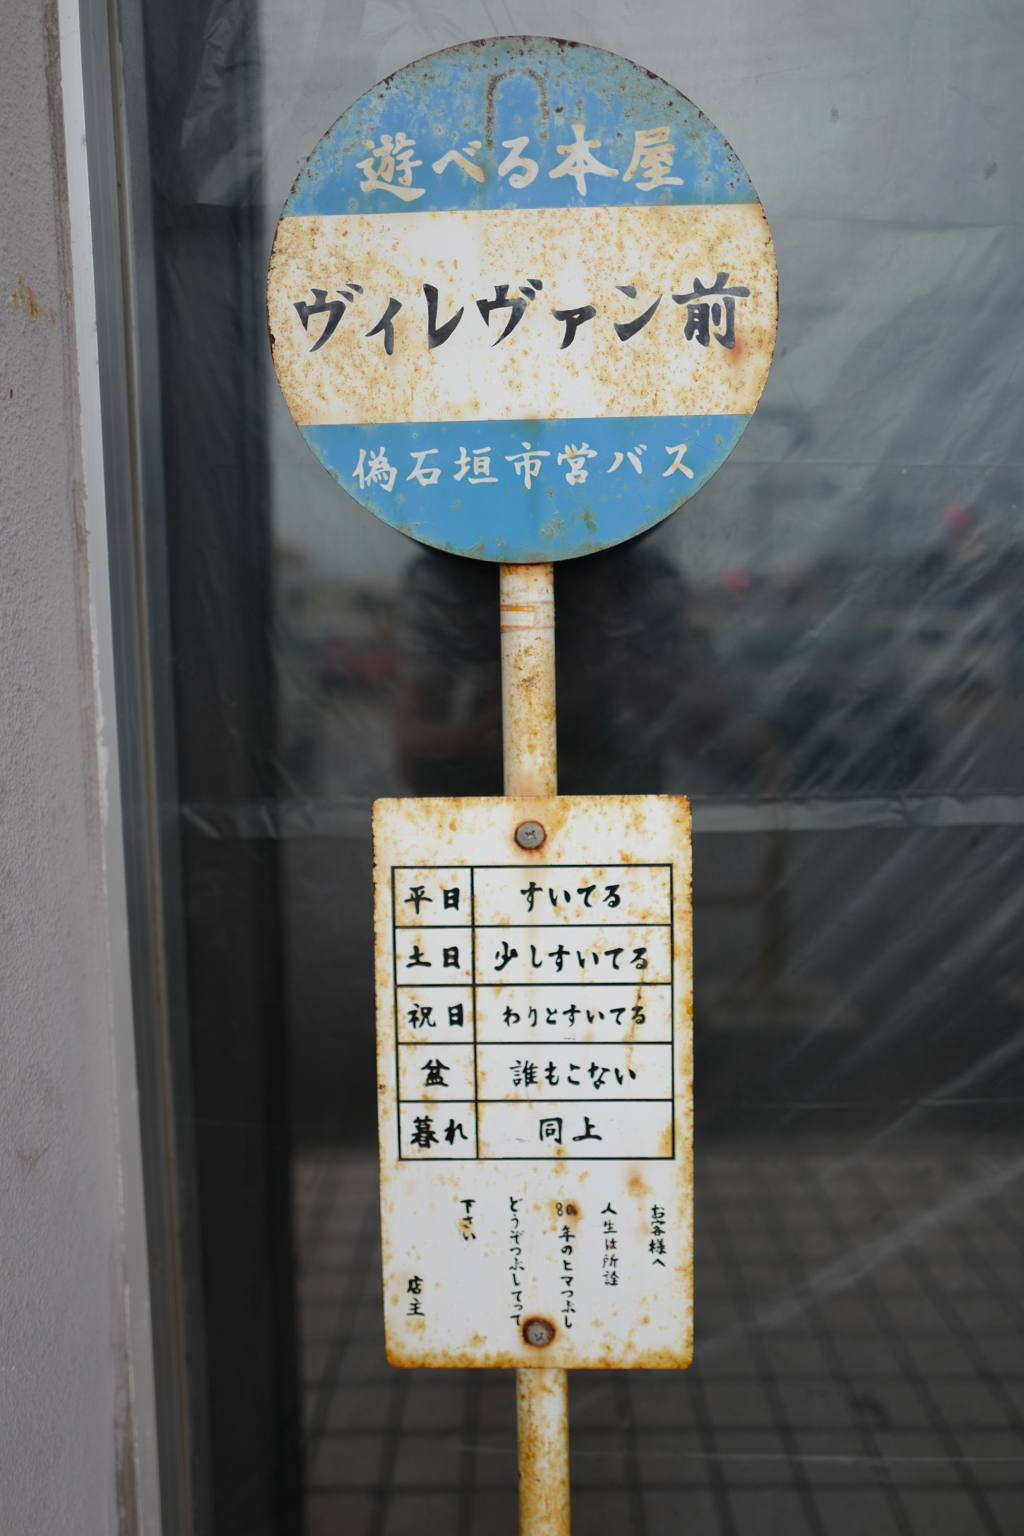 遊べる本屋
ヴィレヴァン前
偽石垣市営バス
平日 すいてる
土日 少しすいてる
祝日 わりとすいてる
盆 誰もこない
暮れ 同上
お客様へ
人生は所詮
80年のヒマつぶし
どうぞつぶしてって
下さい
店主